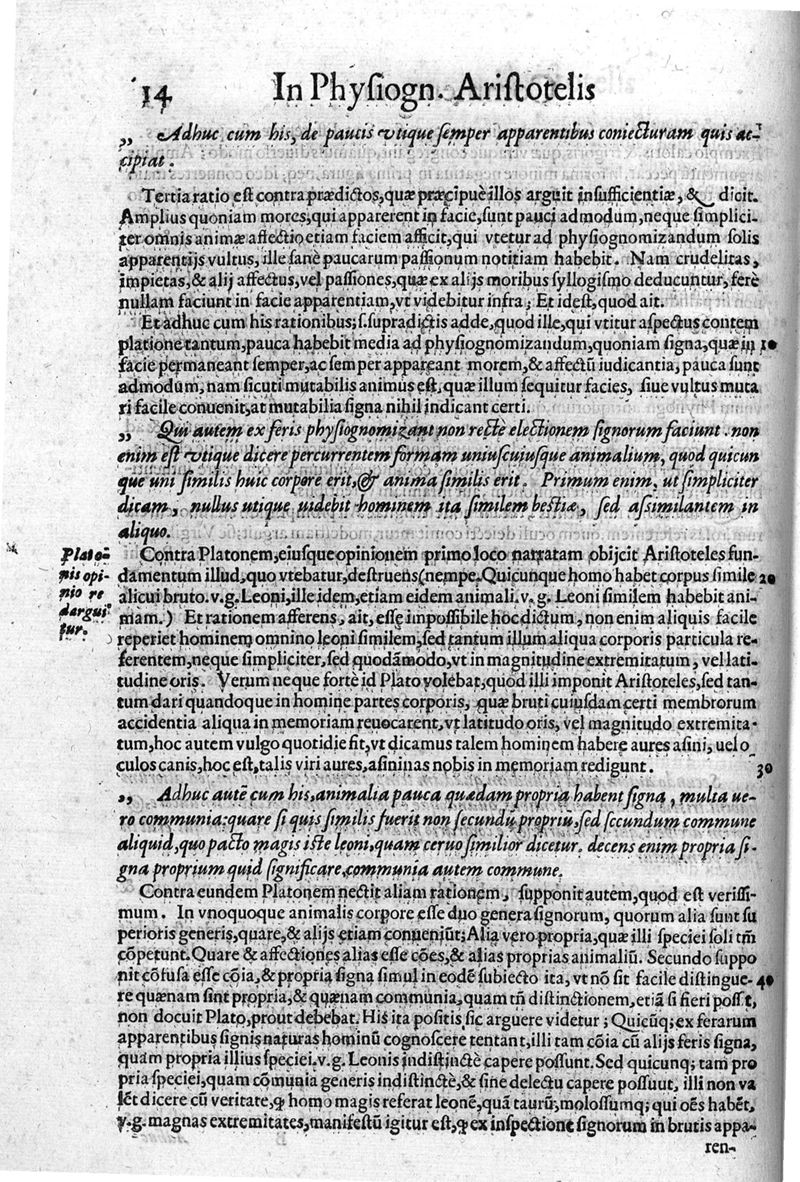 14 In Physiogn. Aristotelis
„ Adhuc cum his, de paucis vtique semper apparentibus coniecturam quis ac-
cipiat.
Tertia ratio est contra prædictos, quæ præcipuè illos arguit insufficientiæ, & dicit.
Amplius quoniam mores, qui apparerent in facie, sunt pauci admodum, neque simplici-
ter omnis animæ affectio etiam faciem afficit, qui vtetur ad physiognomizandum solis
apparentijs vultus, ille sanè paucarum passionum notitiam habebit. Nam crudelitas,
impietas, & alij affectus, vel passiones, quæ ex alijs moribus syllogismo deducuntur, ferè
nullam faciunt in facie apparentiam, vt videbitur infra; Et idest, quod ait.
Et adhuc cum his rationibus; s. supradictis adde, quod ille, qui vtitur aspectus contem
platione tantum, pauca habebit media ad physiognomizandum, quoniam signa, quæ in 10
facie permaneant semper, ac semper appareant morem, & affectũ iudicantia, pauca sunt
admodum, nam sicuti mutabilis animus est, quæ illum sequitur facies, siue vultus muta
ri facile conuenit, at mutabilia signa nihil indicant certi.
„ Qui autem ex feris physiognomizant non recte electionem signorum faciunt. non
enim est vtique dicere percurrentem formam uniuscuiusque animalium, quod quicun
que uni similis huic corpore erit, & anima similis erit. Primum enim, ut simpliciter
dicam, nullus utique uidebit hominem ita similem bestiæ, sed assimilantem in
aliquo.
Plato-
nis opi-
nio re
dargui
tur.
Contra Platonem, eiusque opinionem primo loco narratam obijcit Aristoteles fun-
damentum illud, quo vtebatur, destruens (nempe. Quicunque homo habet corpus simile 20
alicui bruto. v.g. Leoni, ille idem, etiam eidem animali. v. g. Leoni similem habebit ani-
mam.) Et rationem afferens, ait, esse impossibile hoc dictum, non enim aliquis facile
reperiet hominem omnino leoni similem, sed tantum illum aliqua corporis particula re-
ferentem, neque simpliciter, sed quodãmodo, vt in magnitudine extremitatum, vel lati-
tudine oris. Verum neque fortè id Plato volebat, quod illi imponit Aristoteles, sed tan-
tum dari quandoque in homine partes corporis, quæ bruti cuiusdam certi membrorum
accidentia aliqua in memoriam reuocarent, vt latitudo oris, vel magnitudo extremita-
tum, hoc autem vulgo quotidie fit, vt dicamus talem hominem habere aures asini, uel o
culos canis, hoc est, talis viri aures, asininas nobis in memoriam redigunt. 30
„ Adhuc autẽ cum his, animalia pauca quædam propria habent signa, multa ue-
ro communia: quare si quis similis fuerit non secundũ propriũ, sed secundum commune
aliquid, quo pacto magis iste leoni, quam ceruo similior dicetur. decens enim propria si-
gna proprium quid significare, communia autem commune.
Contra eundem Platonem nectit aliam rationem, supponit autem, quod est verissi-
mum. In vnoquoque animalis corpore esse duo genera signorum, quorum alia sunt su
perioris generis, quare, & alijs etiam conueniũt; Alia vero propria, quæ illi speciei soli tm̃
cõpetunt. Quare & affectiones alias esse cões, & alias proprias animaliũ. Secundo suppo
nit cõfusa esse cõia, & propria signa simul in eodẽ subiecto ita, vt nõ sit facile distingue- 40
re quænam sint propria, & quænam communia, quam tñ distinctionem, etiã si fieri posset,
non docuit Plato, prout debebat. His ita positis sic arguere videtur; Quicũq; ex ferarum
apparentibus signis naturas hominũ cognoscere tentant, illi tam cõia cũ alijs feris signa,
quam propria illius speciei. v.g. Leonis indistinctè capere possunt. Sed quicunq; tam pro
pria speciei, quam cõmunia generis indistinctè, & sine delectu capere possuut, illi non va
lẽt dicere cũ veritate, ꝙ homo magis referat leonẽ, quã taurũ, molossumq; qui oẽs habẽt,
v.g. magnas extremitates, manifestũ igitur est, ꝙ ex inspectione signorum in brutis appa-
ren-